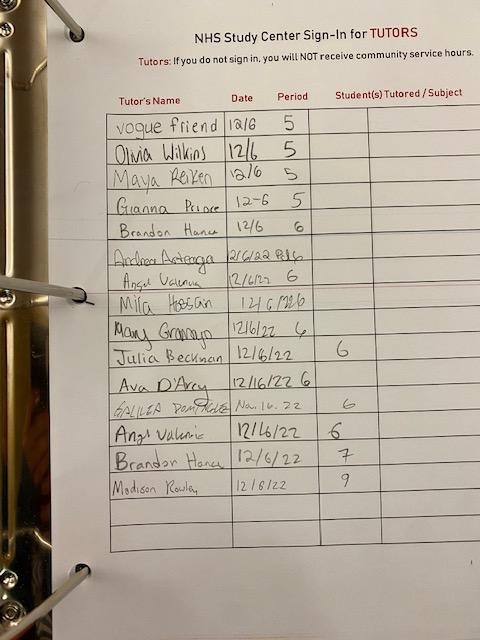 NHS Study Center Sign-In for TUTORS
Tutors: If you do not sign in, you will NOT receive community service hours.
Tutor's Name Date Period Student(s) Tutored / Subject
vogue friend 12/6 5
Olivia Wilkins 12/6 5
Maya Reiken 12/6 5
Gianna Prince 12-6 5
Brandon Hance 12/6 6
Andrea Arteaga 12/6/22 6
Angel Valencia 12/6/22 6
Mila Hassan 12/6/22 6
Mary 12/6/22 6
Julia Beckman 12/6/22 6
Ava D'Arcy 12/16/22 6
GALILEA Nov. 16. 22 6
Angel Valencia 12/6/22 6
Brandon Hance 12/6/22 7
Madison Rowley 12/6/22 9